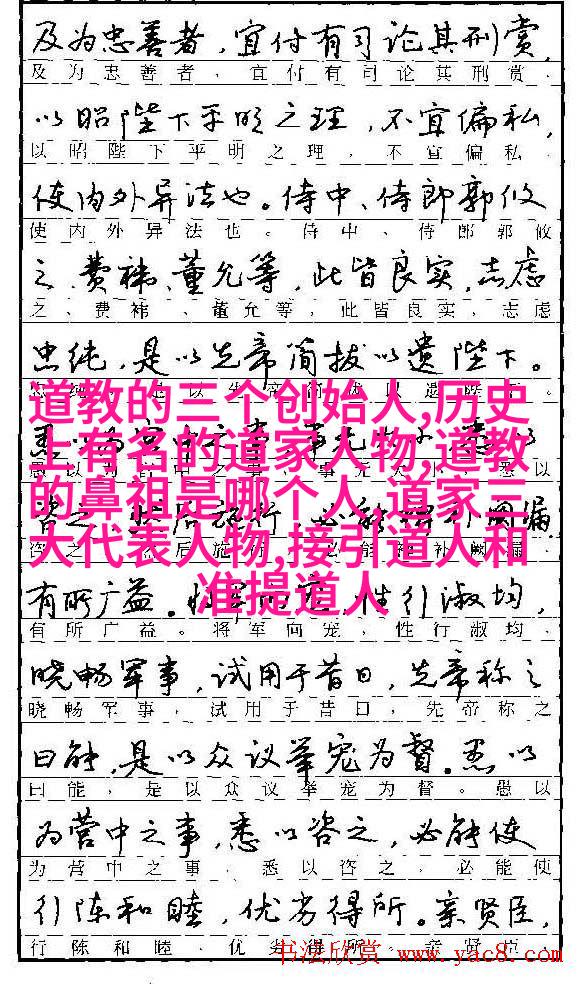 及为忠善者，宜付有司论其刑赏，
及为忠善者，宜付有司论其刑赏，
以昭陛下平明之理，不宜偏私，
以昭陛下平明之理，不宜偏私，
使内外异法也。侍中、侍郎郭攸
使内外异法也。侍中、侍郎郭攸
之、费祎、董允等，此皆良实，志虑
之、费祎、董允等，此皆良实，志虑
忠纯，是以先帝简拔以遗陛下。
道教的三个创始人,历史
上有名的道家人物,道教
的鼻祖是哪个人,道家三
大代表人物,接引道人和
准提道人
有所广益。
有所广益。将军向宠，性行淑均，
晓畅军事，试用于昔日，先帝称之
晓畅军事，试用于昔日，先帝称之
曰能，是以众议举宠为督。愚以
曰能，是以众议举宠为督。愚以
为营中之事，悉以咨之，必能使
为营中之事，悉以咨之，必能使
行阵和睦，优劣得所。亲贤臣，
行阵和睦，优劣得所。亲贤臣，
书法欣赏 www.yac8.com